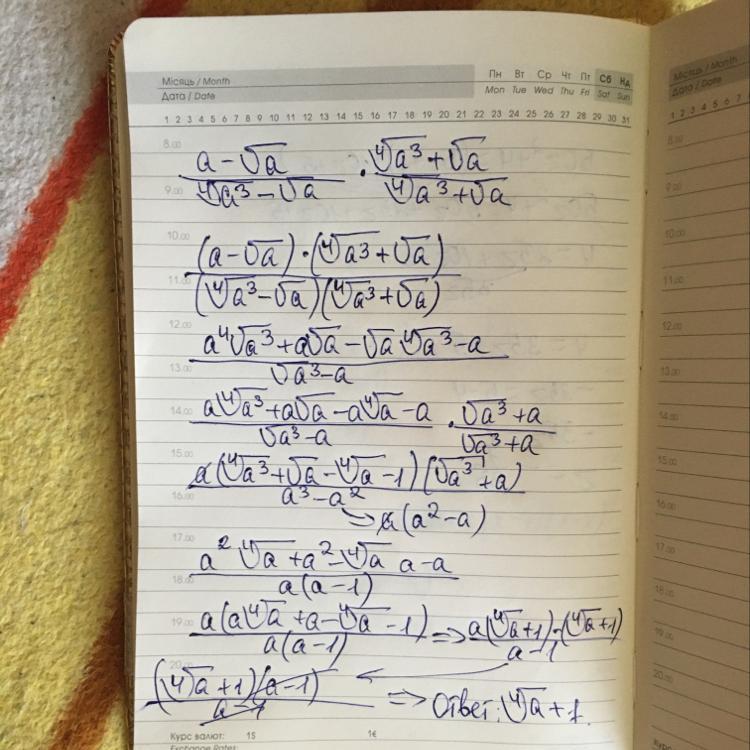 Місяць / Month
Дата / Date
Пн Вт Ср Чт Пт Сб Нд
Mon Tue Wed Thu Fri Sat Sun
1 2 3 4 5 6 7 8 9 10 11 12 13 14 15 16 17 18 19 20 21 22 23 24 25 26 27 28 29 30 31
8.00
(a - √a) / (∜a³ - √a) · (∜a³ + √a) / (∜a³ + √a)
9.00
10.00
(a - √a) · (∜a³ + √a) / (∜a³ - √a)(∜a³ + √a)
11.00
12.00
a ∜a³ + a√a - √a ∜a³ - a / √a³ - a
13.00
14.00
a ∜a³ + a√a - a∜a - a / √a³ - a · (√a³ + a) / (√a³ + a)
15.00
a(∜a³ + √a - ∜a - 1)(√a³ + a) / a³ - a²
16.00
=> a(a² - a)
17.00
a² ∜a + a² - ∜a a - a / a(a - 1)
18.00
19.00
a(a∜a + a - ∜a - 1) / a(a - 1) => a(∜a + 1) - (∜a + 1) / a - 1
20.00
(∜a + 1)(a - 1) / a - 1 => Ответ: ∜a + 1.
Курс валют: 1$ 1€
Exchange Rates:
Місяць / Month
Дата / Date
1 2 3 4 5 6 7
8.00
9.00
10.00
11.00
12.00
13.00
14.00
15.00
16.00
17.00
18.00
19.00
20.00